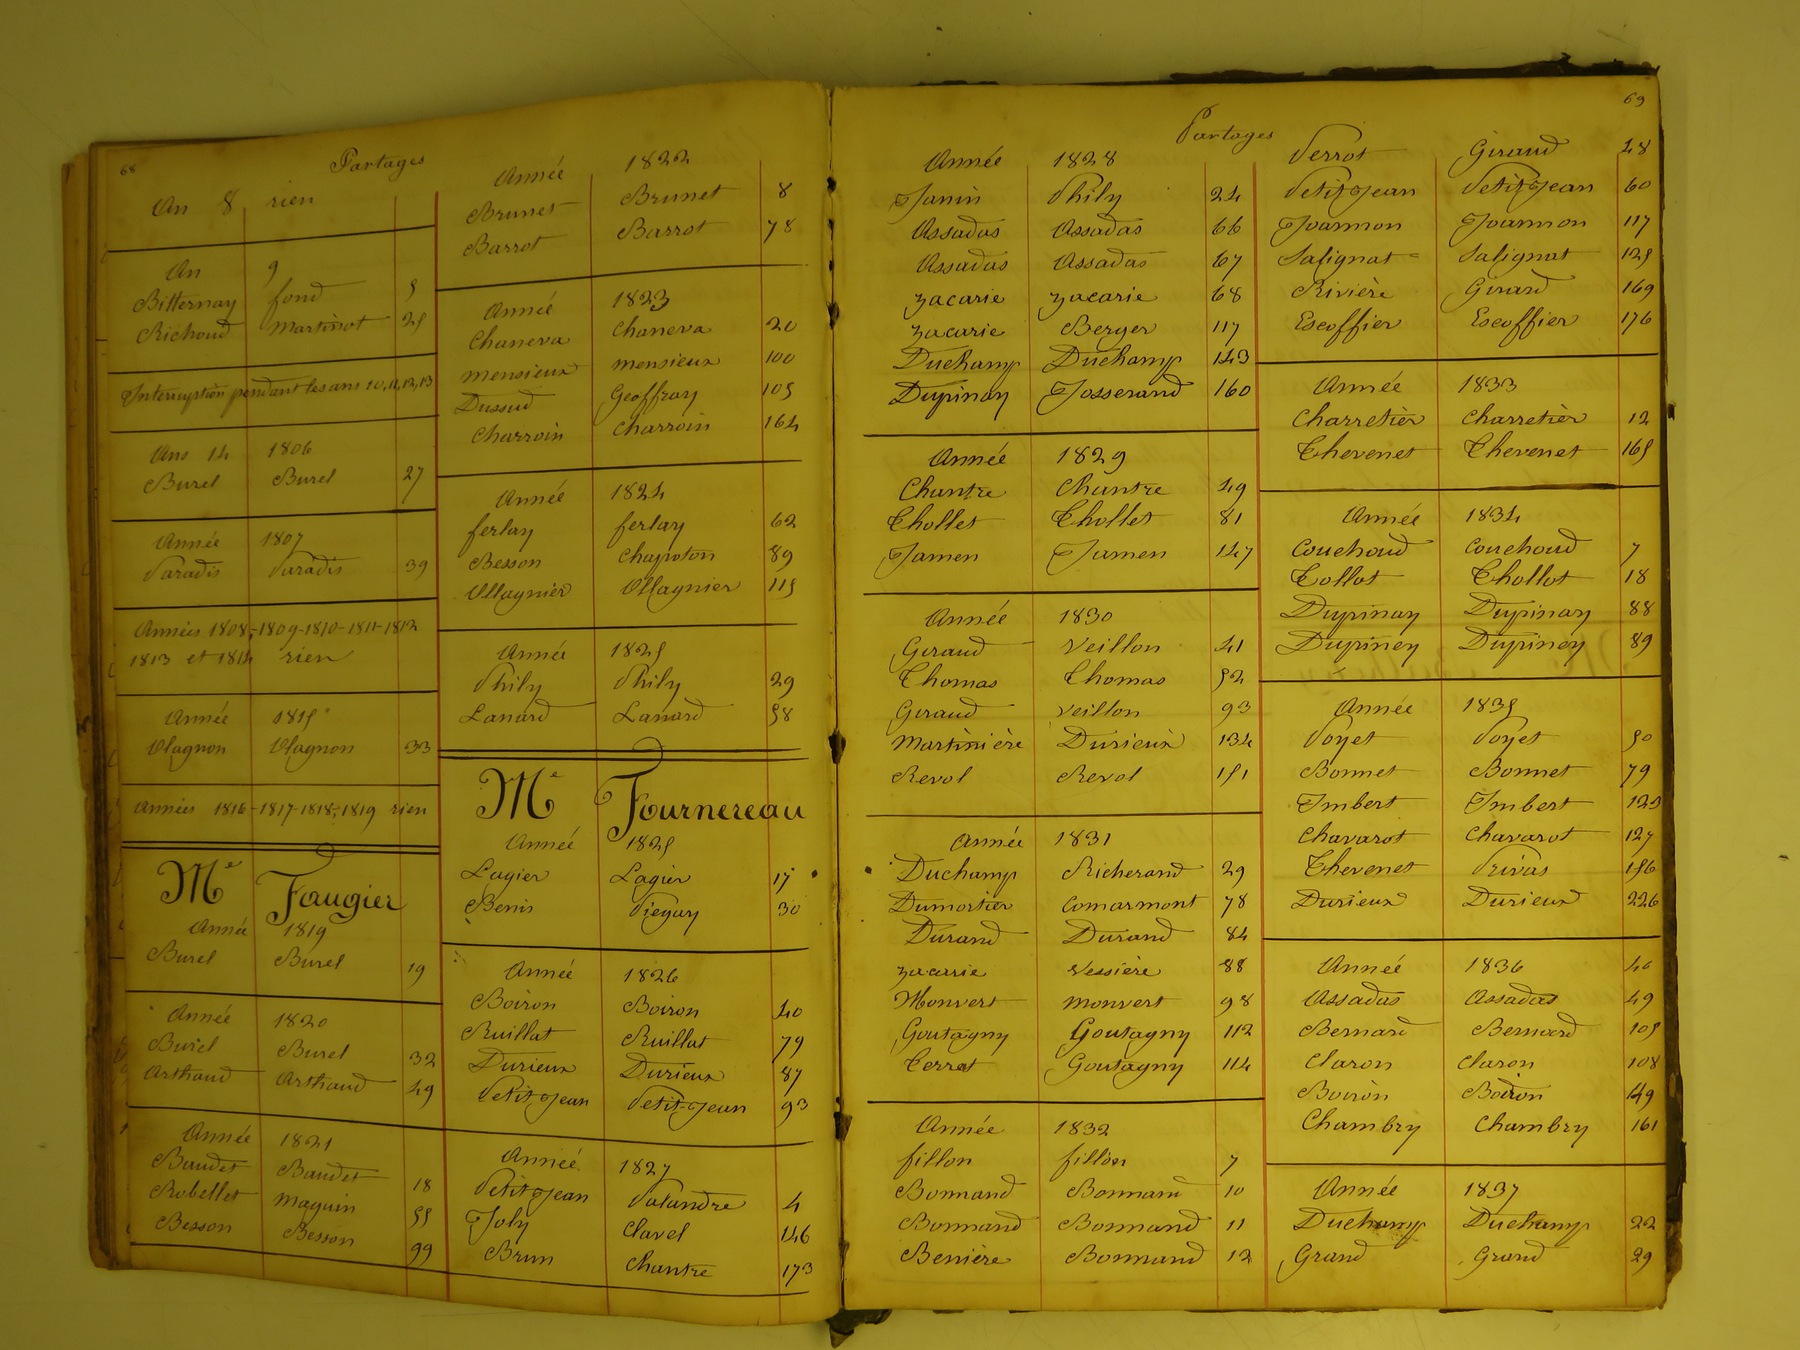 68
Partages
An 8 rien
An 9
Bitternay fond 5
Richoud Martinot 25
Interruption pendant les ans 10, 11, 12, 13
Ans 14 1806
Burel Burel 27
Année 1807
Paradis Paradis 39
Années 1808-1809-1810-1811-1812
1813 et 1814 rien
Année 1815
Ollagnon Ollagnon 33
Années 1816-1817-1818-1819 rien
Me Faugier
Année 1819
Burel Burel 19
Année 1820
Burel Burel 32
Arthaud Arthaud 49
Année 1821
Baudet Baudet 18
Robellet Maguin 55
Besson Besson 99
Année 1822
Brunet Brunet 8
Barrot Barrot 78
Année 1823
Chaneva Chaneva 20
Mensieux Mensieux 100
Dussud Geoffray 105
Charroin Charroin 164
Année 1824
ferlay ferlay 62
Besson Chapoton 89
Ollagnier Ollagnier 115
Année 1825
Phily Phily 29
Lanard Lanard 58
Me Fournereau
Année 1825
Lagier Lagier 17
Benis Piéguy 30
Année 1826
Boiron Boiron 40
Ruillat Ruillat 79
Durieux Durieux 87
Petit-Jean Petit-Jean 93
Année 1827
Petit-Jean Palandre 4
Joly Clavel 146
Brun Chantre 173
69
Partages
Année 1828
Janin Phily 24
Assadas Assadas 66
Assadas Assadas 67
zacarie zacarie 68
zacarie Berger 117
Duchamp Duchamp 143
Dupinay Josserand 160
Année 1829
Chantre Chantre 49
Thollet Thollet 81
Jamen Jamen 147
Année 1830
Giraud Veillon 41
Thomas Thomas 52
Giraud Veillon 93
Martinière Durieux 134
Revol Revol 151
Année 1831
Duchamp Richerand 29
Dumortier Comarmont 78
Durand Durand 84
zacarie Vessière 88
Monvert Monvert 98
Goutagny Goutagny 112
Terrat Goutagny 114
Année 1832
fillon fillon 7
Bonnand Bonnand 10
Bonnand Bonnand 11
Benière Bonnand 12
Perrot Giraud 48
Petit-Jean Petit-Jean 60
Joannon Joannon 117
Salignat Salignat 125
Rivière Girard 169
Escoffier Escoffier 176
Année 1833
Charretier Charretier 12
Thevenet Thevenet 165
Année 1834
Couchoud Couchoud 7
Tollot Thollot 18
Dupinay Dupinay 88
Dupiney Dupiney 89
Année 1835
Poyet Poyet 50
Bonnet Bonnet 79
Imbert Imbert 123
Chavarot Chavarot 127
Thevenet Privas 156
Durieux Durieux 226
Année 1836 46
Assadas Assadas 49
Bernard Bernard 105
Claron Claron 108
Boiron Boiron 149
Chambry Chambry 161
Année 1837
Duchamp Duchamp 22
Grand Grand 29